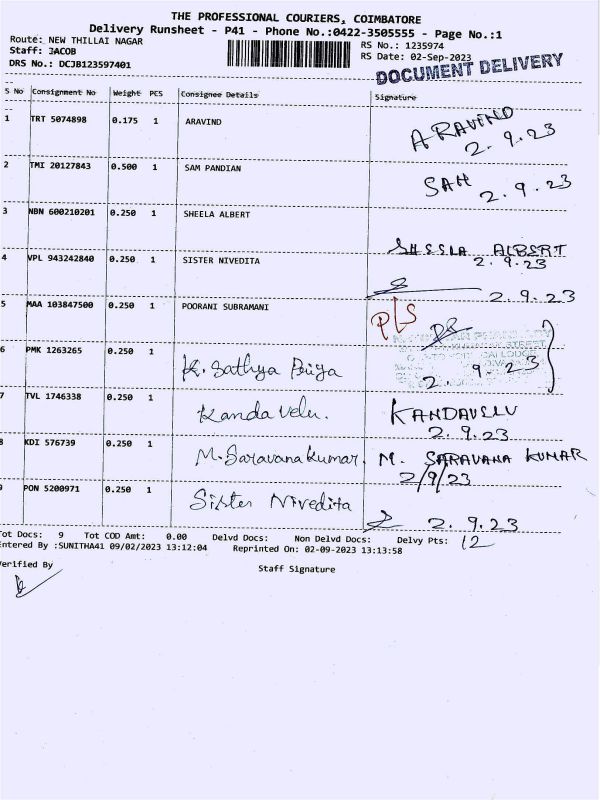 THE PROFESSIONAL COURIERS, COIMBATORE
Delivery Runsheet - P41 - Phone No.:0422-3505555 - Page No.:1
Route: NEW THILLAI NAGAR RS No.: 1235974
Staff: JACOB RS Date: 02-Sep-2023
DRS No.: DCJB123597401
DOCUMENT DELIVERY
S No Consignment No Weight PCS Consignee Details Signature
1 TRT 5074898 0.175 1 ARAVIND ARAVIND
2.9.23
2 TMI 20127843 0.500 1 SAM PANDIAN SAM
2.9.23
3 NBN 600210201 0.250 1 SHEELA ALBERT
SHEELA ALBERT
2.9.23
4 VPL 943242840 0.250 1 SISTER NIVEDITA
2.9.23
5 MAA 103847500 0.250 1 POORANI SUBRAMANI
P/S
6 PMK 1263265 0.250 1 K. Sathya Priya
2.9.23
7 TVL 1746338 0.250 1 Kanda Velu. KANDAVELU
2.9.23
8 KDI 576739 0.250 1 M. Saravana Kumar. M. SARAVANA KUMAR
2/9/23
9 PON 5200971 0.250 1 Sister Nivedita
2.9.23
Tot Docs: 9 Tot COD Amt: 0.00 Delvd Docs: Non Delvd Docs: Delvy Pts: 12
Entered By :SUNITHA41 09/02/2023 13:12:04 Reprinted On: 02-09-2023 13:13:58
Verified By Staff Signature